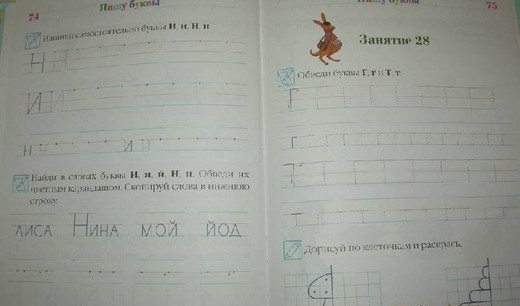 Пишу буквы
74
Напиши самостоятельно буквы И, и, Н, н
Н
И
н и
Найди в словах буквы И, и, й, Н, н. Обведи их
цветным карандашом. Скопируй слова в нижнюю
строку.
ЛИСА НИНА МОЙ ЙОД
Пишу буквы
75
Занятие 28
Обведи буквы Г, г и Т, т.
Г
Г
Т
Т
Дорисуй по клеточкам и раскрась.